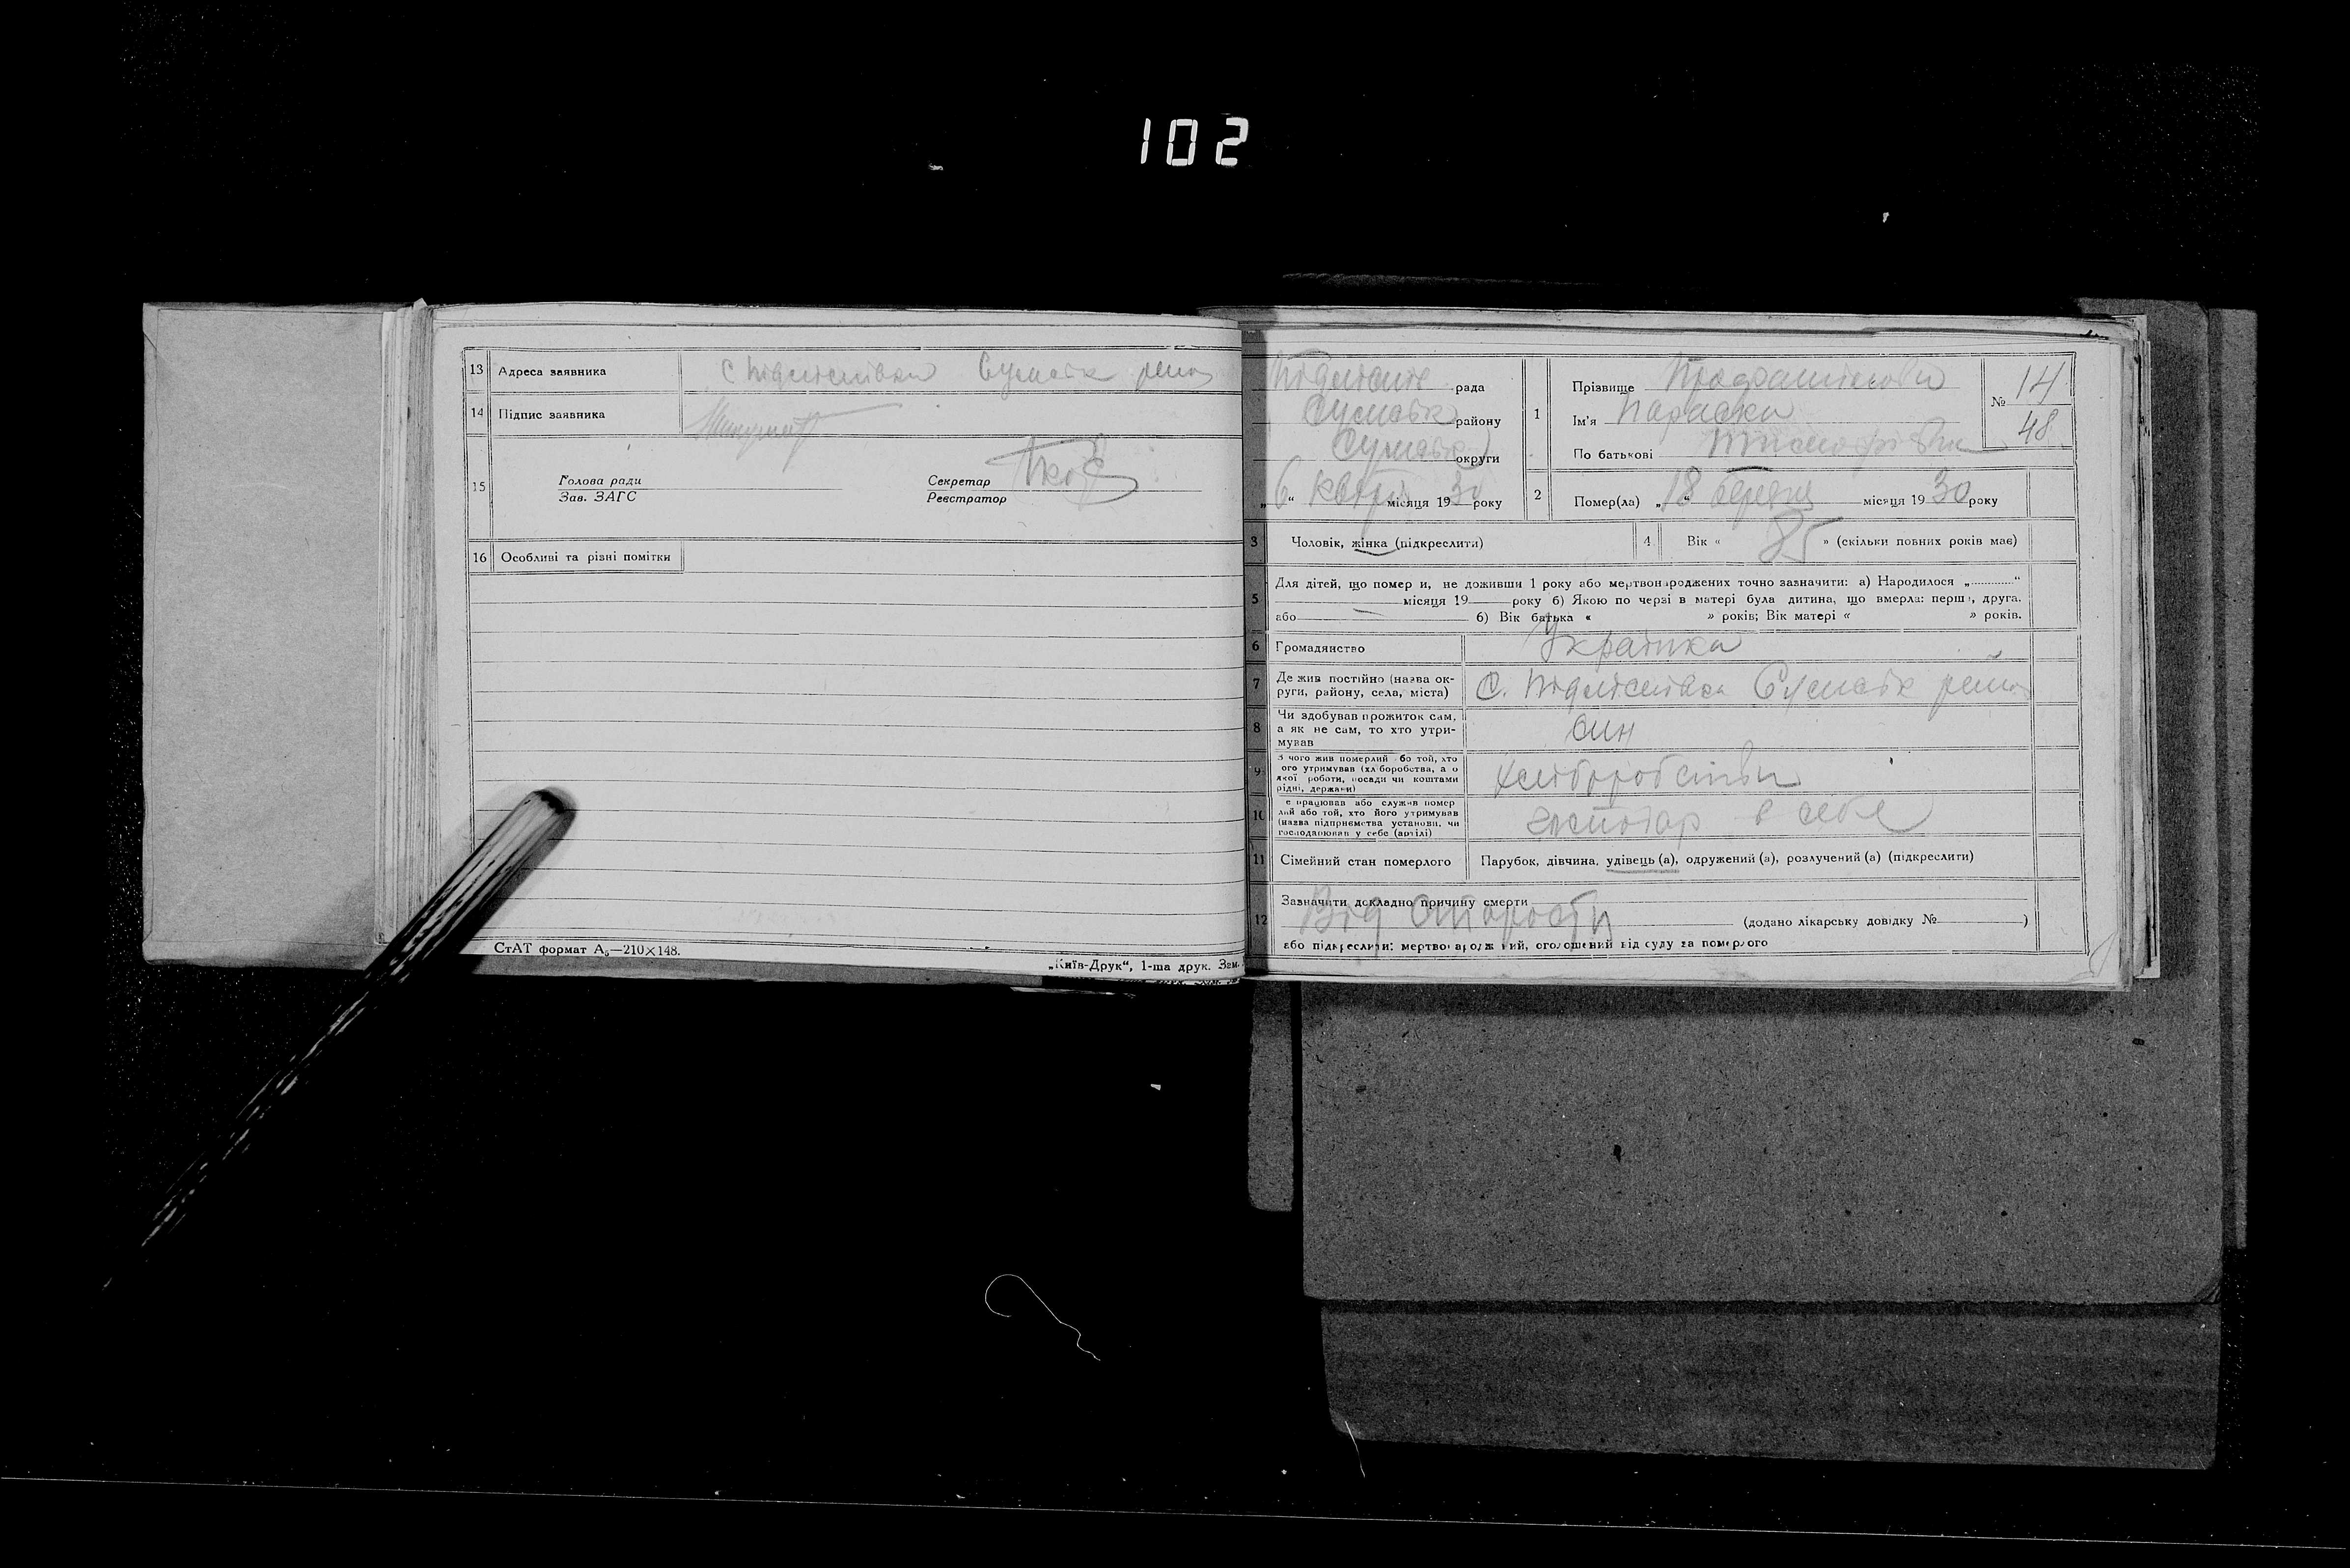 102
13 Адреса заявника с Підліснівка Сумськ район
14 Підпис заявника
15 Голова ради
Зав. ЗАГС
Секретар
Реєстратор
16 Особливі та різні помітки
СтАТ формат А₅—210×148.
„Київ-Друк“, 1-ша друк. Зам.
Підлісн рада
Сумськ району
Сумськ округи
„6“ Квітн місяця 1930 року
1 Прізвище
Ім'я Параска
По батькові
№ 14
48
2 Помер(ла) „18“ березня місяця 1930 року
3 Чоловік, жінка (підкреслити)
4 Вік «85» (скільки повних років має)
5 Для дітей, що помер и, не доживши 1 року або мертвонароджених точно зазначити: а) Народилося „ “
місяця 19 року б) Якою по черзі в матері була дитина, що вмерла: перш, друга,
або б) Вік батька « » років; Вік матері « » років.
6 Громадянство Українка
7 Де жив постійно (назва округи, району, села, міста) с. Підліснівка Сумськ район
8 Чи здобував прожиток сам, а як не сам, то хто утримував син
9 З чого жив померлий або той, хто його утримував (хліборобства, а о якої роботи, посади чи коштами рідні, держави) хліборобства
10 е працював або служив померлий або той, хто його утримував (назва підприємства установи, чи господарював у себе (артілі) в себе
11 Сімейний стан померлого Парубок, дівчина, удівець (а), одружений (а), розлучений (а) (підкреслити)
12 Зазначити докладно причину смерти
Від старости (додано лікарську довідку № )
або підкреслити: мертвонароджений, оголошений від суду за померлого